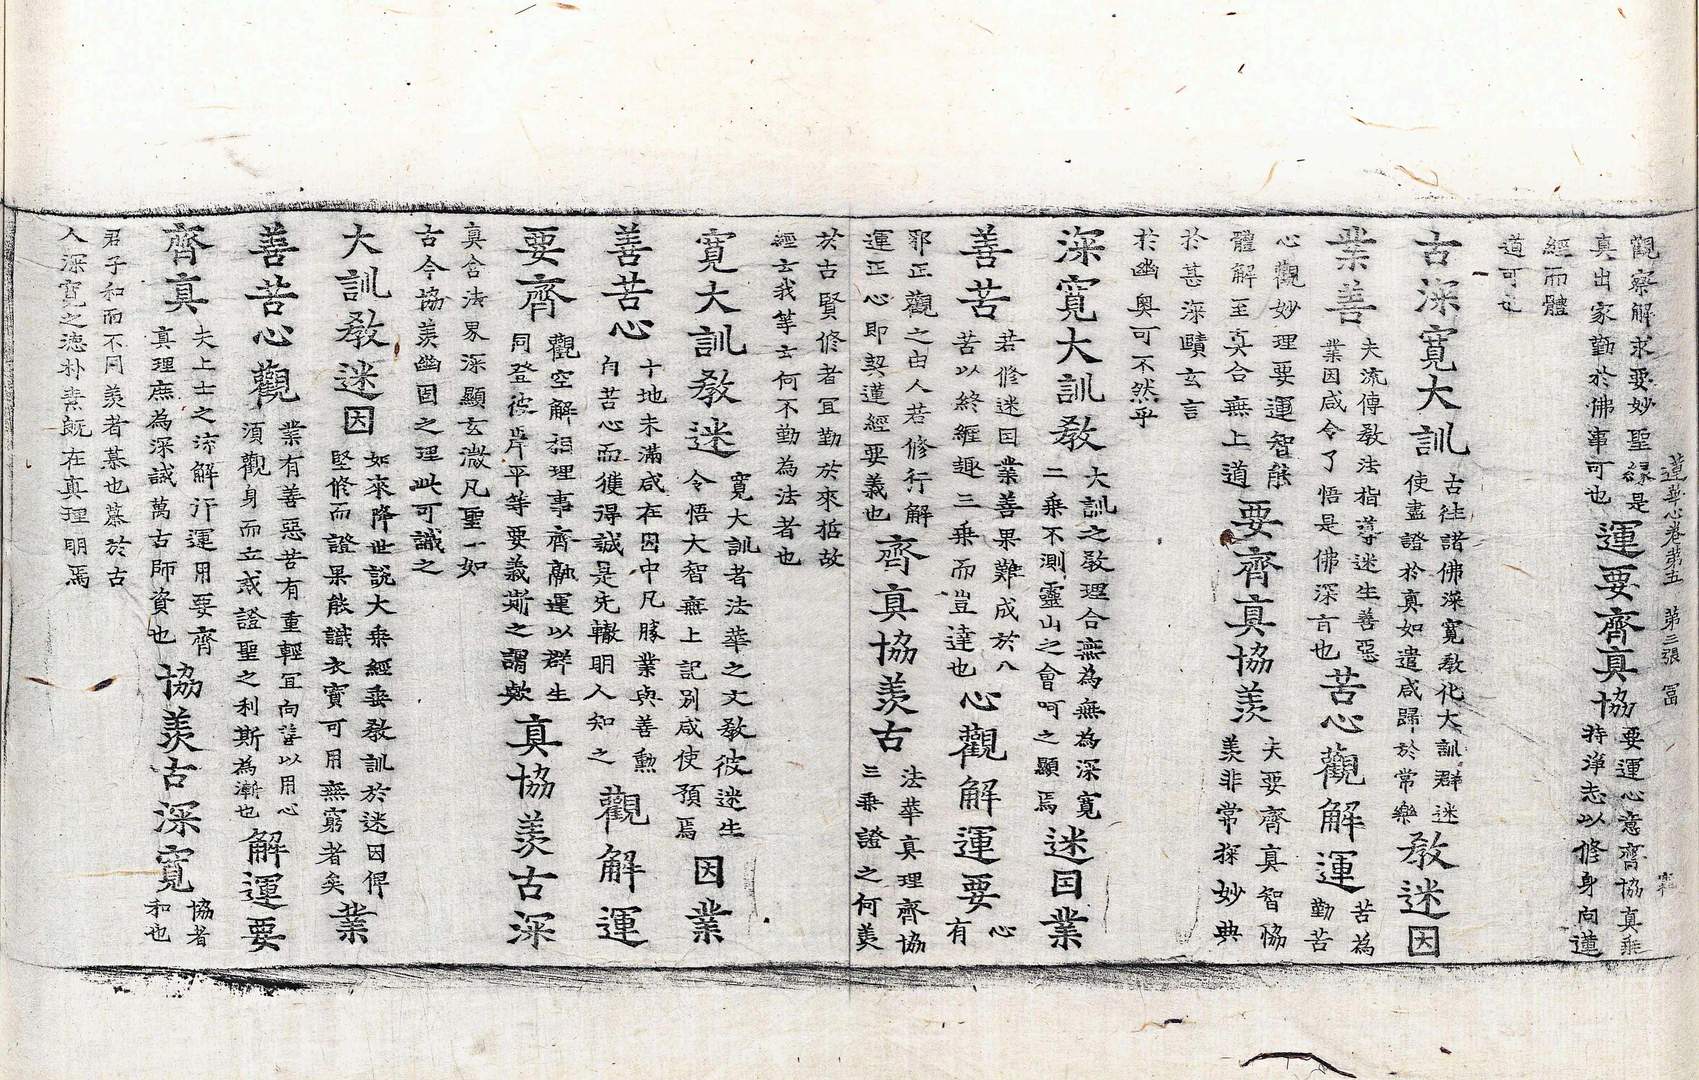 蓮華心卷第五 第三張 冨
觀察解求要妙聖緣是
真出家勤於佛事可也
運要齊真協
要運心意齊協真乘
持淨志以修身向道
經而體
道可也
古深寬大訓
古往諸佛深寬教化大訓群迷
使盡證於真如遣咸歸於常樂
教迷因
業善
夫流傳教法指導迷生善惡
業因咸令了悟是佛深言也
苦心觀解運
苦為
勤苦
心觀妙理要運智能
體解至真合無上道
要齊真協羨
夫要齊真智恊
羨非常探妙典
於甚深賾玄言
於幽奧可不然乎
深寬大訓教
大訓之教理合無為無為深寬
二乘不測靈山之會呵之顯焉
迷因業
善苦
若修迷因業善果難成於八
苦以終纏趣三乘而豈達也
心觀解運要
心
有
邪正觀之由人若修行解
運正心即契道經要義也
齊真協羨古
法華真理齊協
三乘證之何羨
於古賢修者冝勤於來哲故
經云我等云何不勤為法者也
寬大訓教迷
寬大訓者法華之文教彼迷生
令悟大智無上記別咸使預焉
因業
善苦心
十地未滿咸在因中凡勝業與善勳
自苦心而獲得誠是先轍明人知之
觀解運
要齊
觀空解理事齊融運以群生
同登彼岸平等要義斯之謂歟
真協羨古深
真含法界深顯玄微凡聖一如
古今協羨幽固之理此可誠之
大訓教迷因
如來降世說大乘經垂教訓於迷因俾
堅修而證果能識衣寶可用無窮者矣
業
善苦心觀
業有善惡苦有重輕冝向善以用心
須觀身而立或證聖之利斯為漸也
解運要
齊真
夫上士之流解行運用要齊
真理庶為深誡萬古師資也
協羨古深寬
協者
和也
君子和而不同羨者慕也慕於古
人深寬之德朴素既在真理明焉